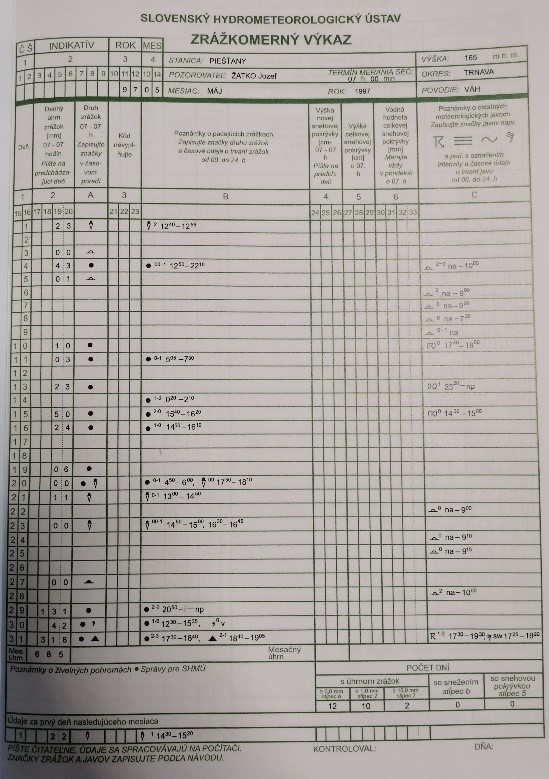 SLOVENSKÝ HYDROMETEOROLOGICKÝ ÚSTAV
ZRÁŽKOMERNÝ VÝKAZ
ČS INDIKATÍV ROK MES
1 2 3 4 STANICA: PIEŠŤANY VÝŠKA: 165 m n. m.
1 2 3 4 5 6 7 8 9 10 11 12 13 14 POZOROVATEĽ: ŽATKO Jozef TERMÍN MERANIA SEČ: 07 h 00 min OKRES: TRNAVA
9 7 0 5 MESIAC: MÁJ ROK: 1997 POVODIE: VÁH
Deň
Denný úhrn zrážok [mm] 07 - 07 hodín Píšte na predchádzajúci deň
Druh zrážok 07 - 07 h Zapisujte značky v časovom poradí
Kód nevypĺňujte
Poznámky o padajúcich zrážkach
Zapisujte značky druhu zrážok a časové údaje o trvaní zrážok od 00. do 24. h
Výška novej snehovej pokrývky [cm] 07 - 07 h Píšte na predch. deň
Výška celkovej snehovej pokrývky [cm] o 07. h
Vodná hodnota celkovej snehovej pokrývky [mm] Merajte vždy v pondelok o 07. h
Poznámky o ostatných meteorologických javoch
Zapisujte značky javov napr.
a pod. s označením intenzity a časové údaje o trvaní javu od 00. do 24. h
1 2 A 3 B 4 5 6 C
15 16 17 18 19 20 21 22 23 24 25 26 27 28 29 30 31 32 33
1 2 3 12⁴⁰-12⁵⁵
2
3 0 0
4 4 3 ● 12⁵⁰-22¹⁰ na-10⁰⁰
5 0 1
6 na-9⁰⁰
7 na-9⁰⁰
8 na-7³⁰
9 na
10 1 0 ● 17⁴⁰-18⁰⁰
11 0 3 ● ● 0-1 5⁰⁵-7³⁰
12
13 2 3 ● 23²⁰-np
14 ● 1-0 0²⁰-2¹⁰
15 5 0 ● ● 2-0 15⁴⁰-16²⁰ 14³⁰-15⁰⁰
16 2 4 ● ● 1-0 14⁵⁰-16¹⁰
17
18
19 0 6 ●
20 0 0 ● ● 0-1 4⁵⁰-6⁰⁰, 17⁵⁰-18¹⁰
21 1 1 0-1 13⁰⁰-14⁵⁰
22 na-9⁰⁰
23 0 0 14⁵⁰-15⁰⁰, 16³⁰-16⁴⁵
24 na-9¹⁰
25 na-9¹⁵
26
27 0 0
28 na-10⁰⁰
29 1 3 1 ● ● 2-0 20⁵⁰-i-np
30 4 2 ● , ● 1-0 12³⁰-15²⁵, ,⁰ v
31 3 1 8 ● ▲ ● 2-3 17³⁰-18⁴⁰, ▲ 2-1 18⁴⁰-19⁰⁵ 17³⁰-19³⁰, SW 17²⁵-19²⁰
Mes. úhrn 6 8 5 Mesačný úhrn
Poznámky o živelných pohromách ● Správy pre SHMÚ
POČET DNÍ
s úhrnom zrážok so snežením stĺpec B so snehovou pokrývkou stĺpec 5
≥ 0,0 mm stĺpec 2 ≥ 1,0 mm stĺpec 2 ≥ 10,0 mm stĺpec 2
12 10 2 0 0
Údaje za prvý deň nasledujúceho mesiaca
1 2 2 1 14³⁰-15²⁰
PÍŠTE ČITATEĽNE, ÚDAJE SA SPRACOVÁVAJÚ NA POČÍTAČI. KONTROLOVAL: DŇA:
ZNAČKY ZRÁŽOK A JAVOV ZAPISUJTE PODĽA NÁVODU.